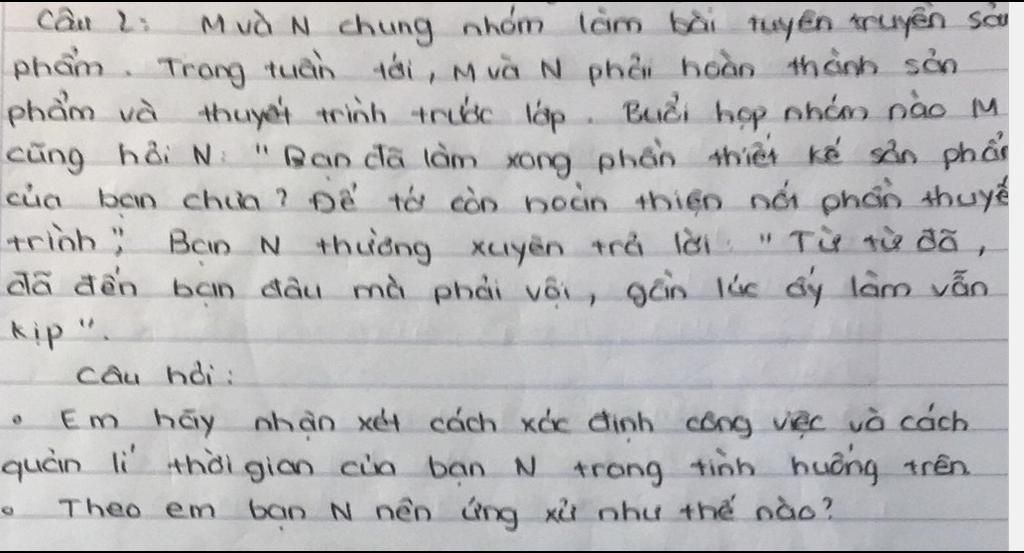 Câu 2: M và N chung nhóm làm bài tuyên truyền sản
phẩm. Trong tuần tới, M và N phải hoàn thành sản
phẩm và thuyết trình trước lớp. Buổi họp nhóm nào M
cũng hỏi N: "Bạn đã làm xong phần thiết kế sản phẩm
của bạn chưa? Để tớ còn hoàn thiện nốt phần thuyết
trình"; Bạn N thường xuyên trả lời: "Từ từ đã,
đã đến bạn đâu mà phải vội, gần lúc ấy làm vẫn
kịp".
Câu hỏi:
• Em hãy nhận xét cách xác định công việc và cách
quản lí thời gian của bạn N trong tình huống trên
• Theo em bạn N nên ứng xử như thế nào?